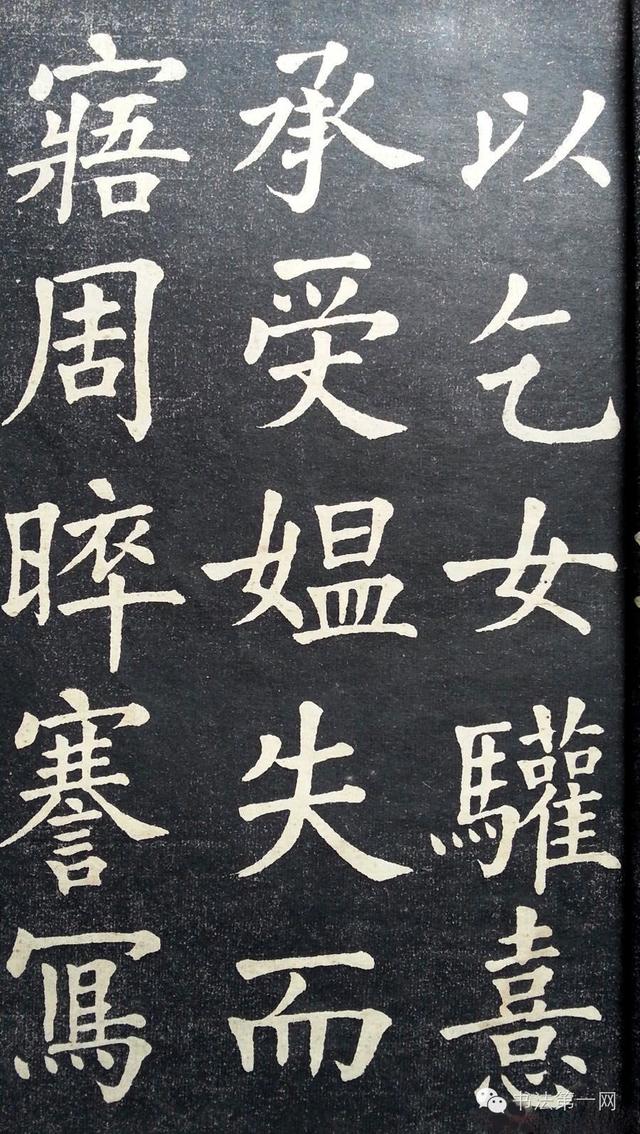 以乞女驩憙
承受媪失而
寤周晬謇冩
书法第一网